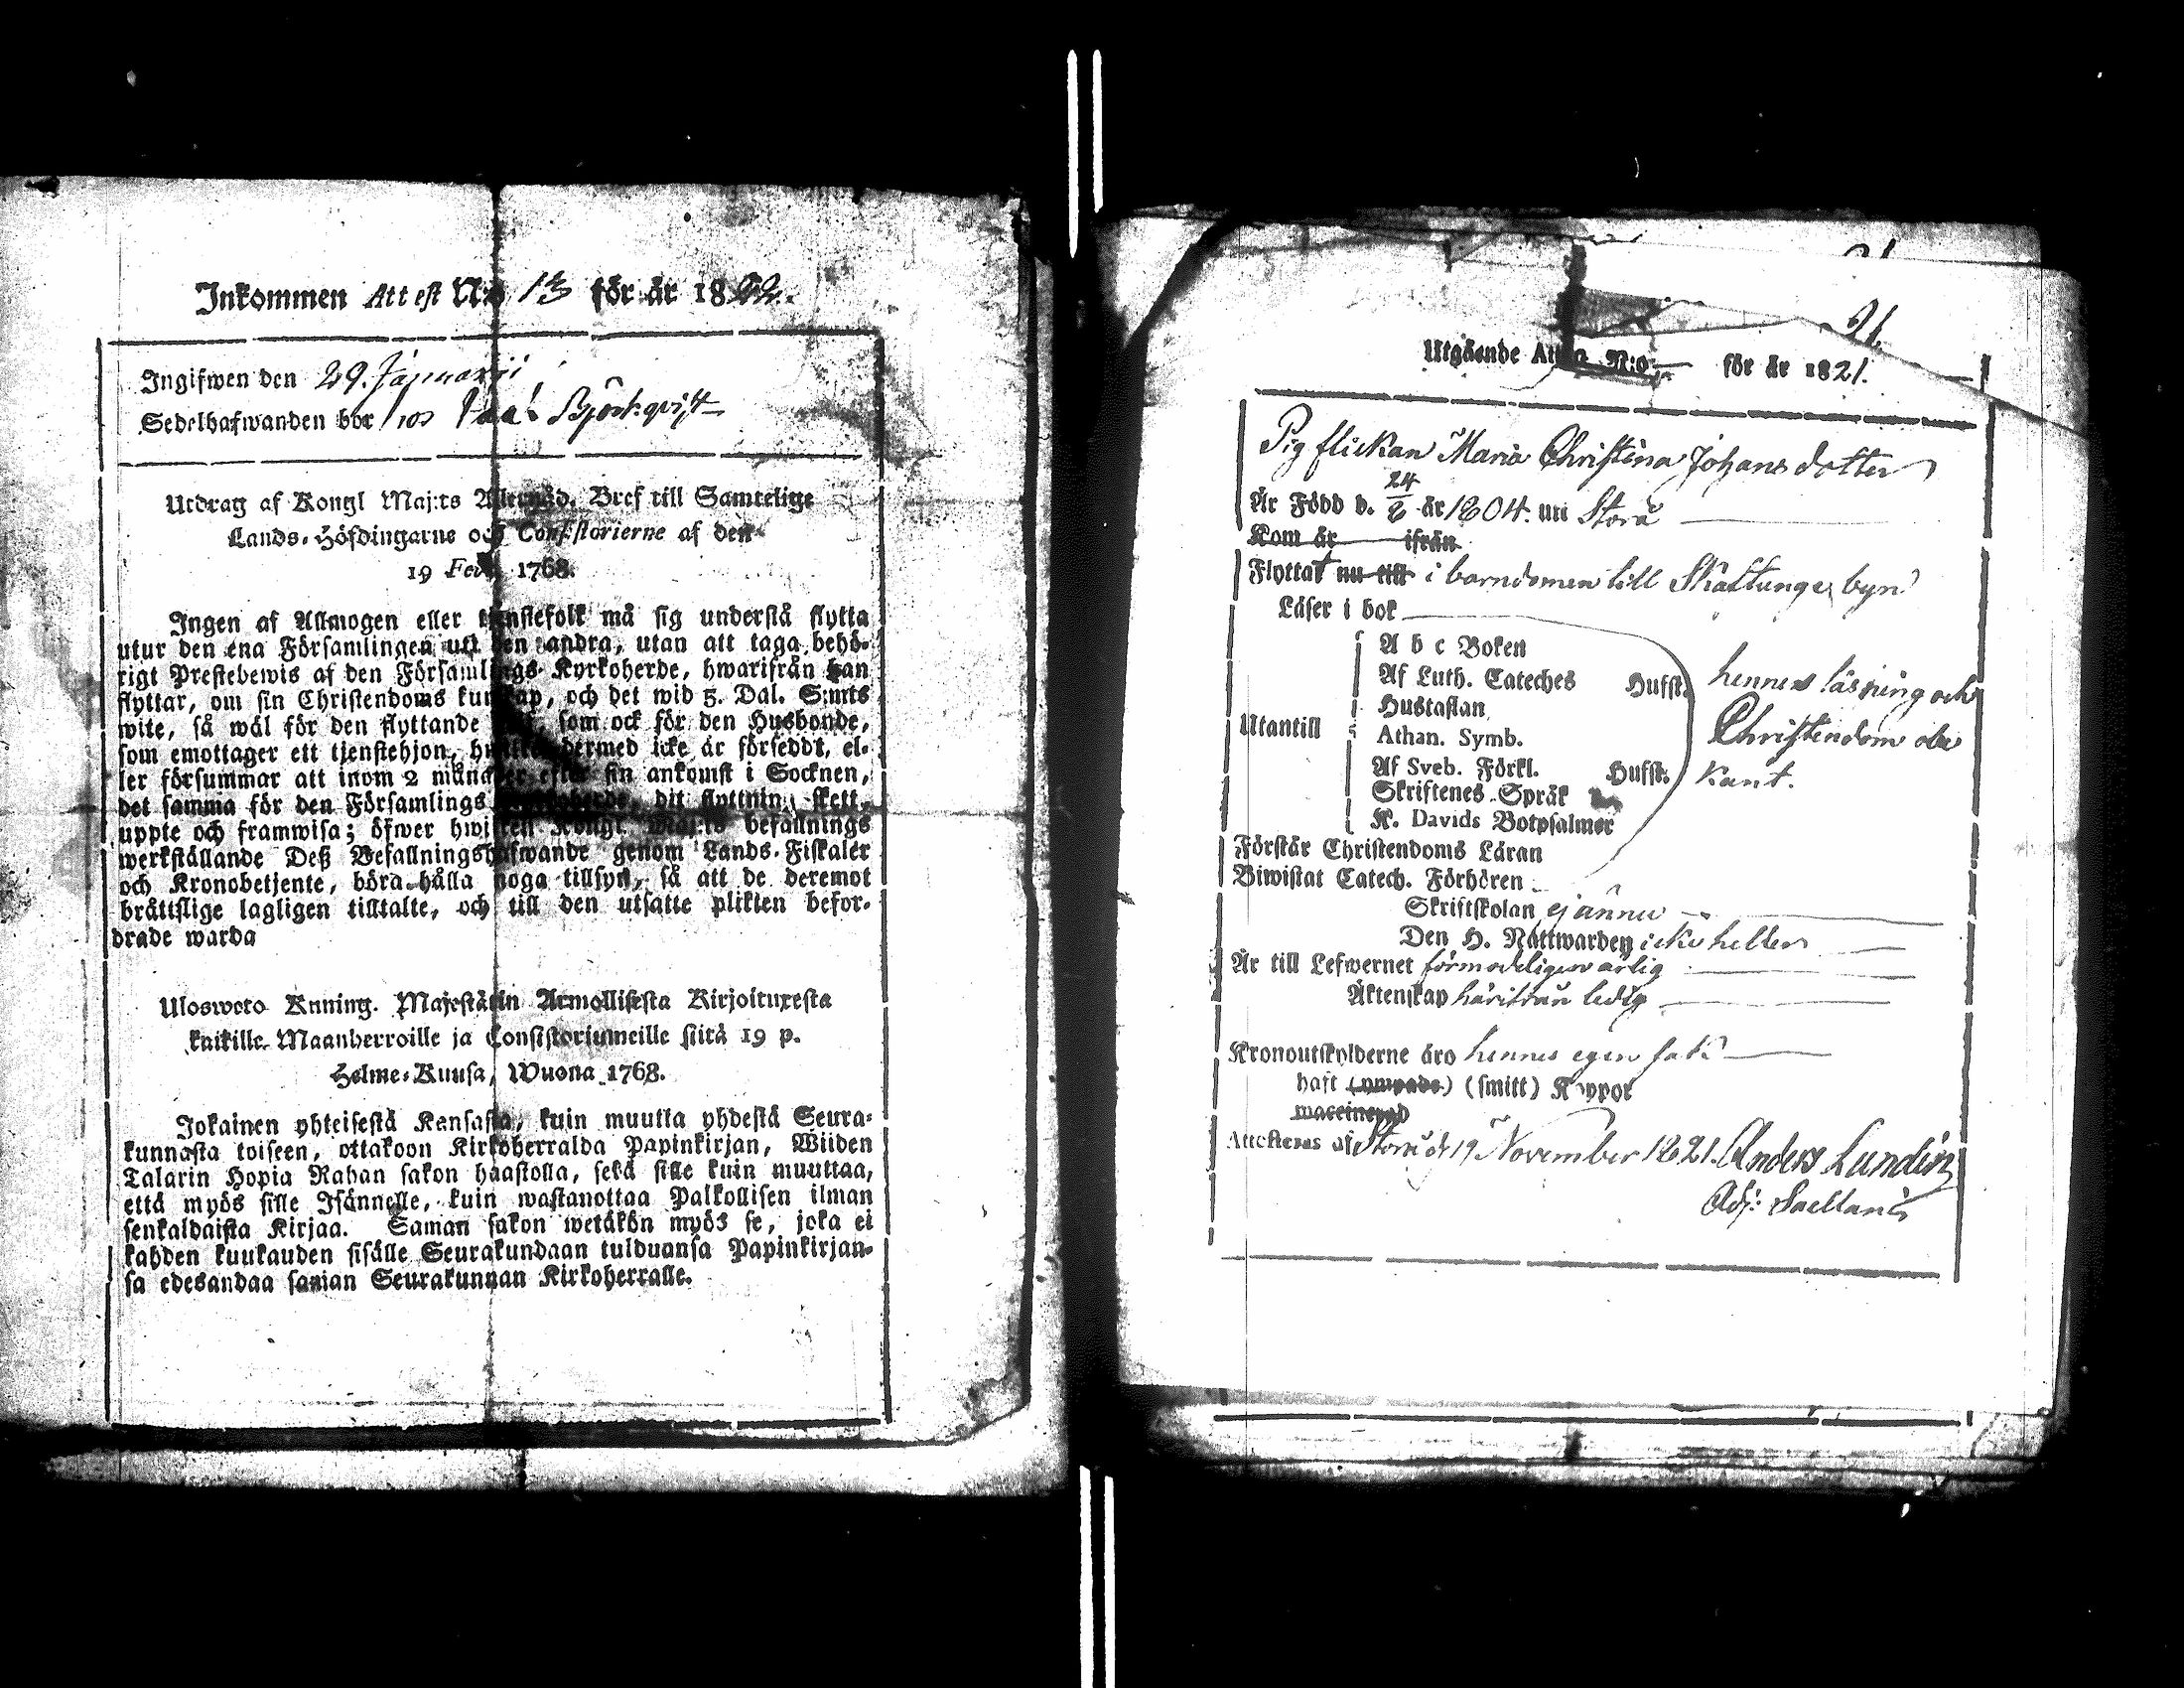 Inkommen Attest N:o 13 för år 1822.
Ingifwen den 29. Januarii
Sedelhafwanden bor hos Björkqvist
Utdrag af Kongl Maj:ts Allernåd. Bref till Samtelige
Lands-Höfdingarne och Consistorierne af den
19 Febr. 1768.
Ingen af Allmogen eller tjenstefolk må sig understå flytta
utur den ena Församlingen uti den andra, utan att taga behö-
rigt Prestebewis af den Församlings Kyrkoherde, hwarifrån han
flyttar, om sin Christendoms kunskap, och det wid 5. Dal. S:mts
wite, så wäl för den flyttande som ock för den Husbonde,
som emottager ett tjenstehjon, dermed icke är försedt, el-
ler försummar att inom 2 månader efter sin ankomst i Socknen,
det samma för den Församlings Kyrkoherde, dit flyttning skett,
uppte och framwisa; öfwer hwilken Kongl. Maj:ts befallnings
werkställande Deß Befallningshafwande genom Lands-Fiskaler
och Kronobetjente, böra hålla noga tillsyn, så att de deremot
bråttslige lagligen tilltalte, och till den utsatte plikten befor-
drade warda
Ulosweto Knning. Majestätin Armollisesta Kirjoituxesta
kaikille Maanherroille ja Consistoriumeille siitä 19 p.
Helme-Kuusa, Wuona 1768.
Jokainen yhteisestä Kansasta, kuin muutta yhdestä Seura-
kunnasta toiseen, ottakoon Kirkoherralda Papinkirjan, Wiiden
Talarin Hopia Rahan sakon haastolla, sekä sille kuin muuttaa,
että myös sille Isännelle, kuin wastanottaa Palkollisen ilman
senkaldaista Kirjaa. Saman sakon wetäkön myös se, joka ei
kahden kuukauden sisälle Seurakundaan tulduansa Papinkirjan-
sa edesandaa sanian Seurakunnan Kirkoherralle.
21.
Utgående N:o — för år 1821.
Pigflickan Maria Christina Johansdotter
Är Född d. 24/2 år 1804. uti Storå
Kom år ifrån
Flyttat nu till i barndomen till Skattunge byn
Läser i bok
A b c Boken
Af Luth. Cateches Husst.
hennes läsning och
Hustaflan
Utantill
Athan. Symb.
Christendom obe
Af Sveb. Förkl. Husst.
kant.
Skriftenes Språk
K. Davids Botpsalmer
Förstår Christendoms Läran
Biwistat Catech. Förhören
Skriftskolan ej ännu
Den H. Nattwarden icke heller
Är till Lefwernet förmodeligen ärlig
Äktenskap härifrån ledig
Kronoutskylderne äro hennes egen sak
haft (ympade) (smitt) Koppor
Attesteras af Storå d. 19 November 1821. Anders Lundin
Adj: